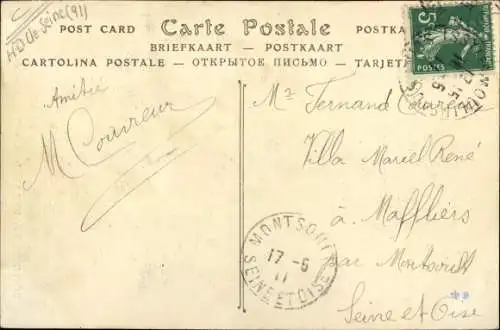 HD de Seine (91)
POST CARD Carte Postale POSTKA
BRIEFKAART — POSTKAART
CARTOLINA POSTALE — ОТКРЫТОЕ ПИСЬМО — TARJETA
5
POSTES
Amitié
M Couvreur
Mr Fernand Couvreur
Villa Marcel René
à Maffliers
par Montsoult
Seine et Oise
MONTSOULT
17 - 6
11
SEINE ET OISE